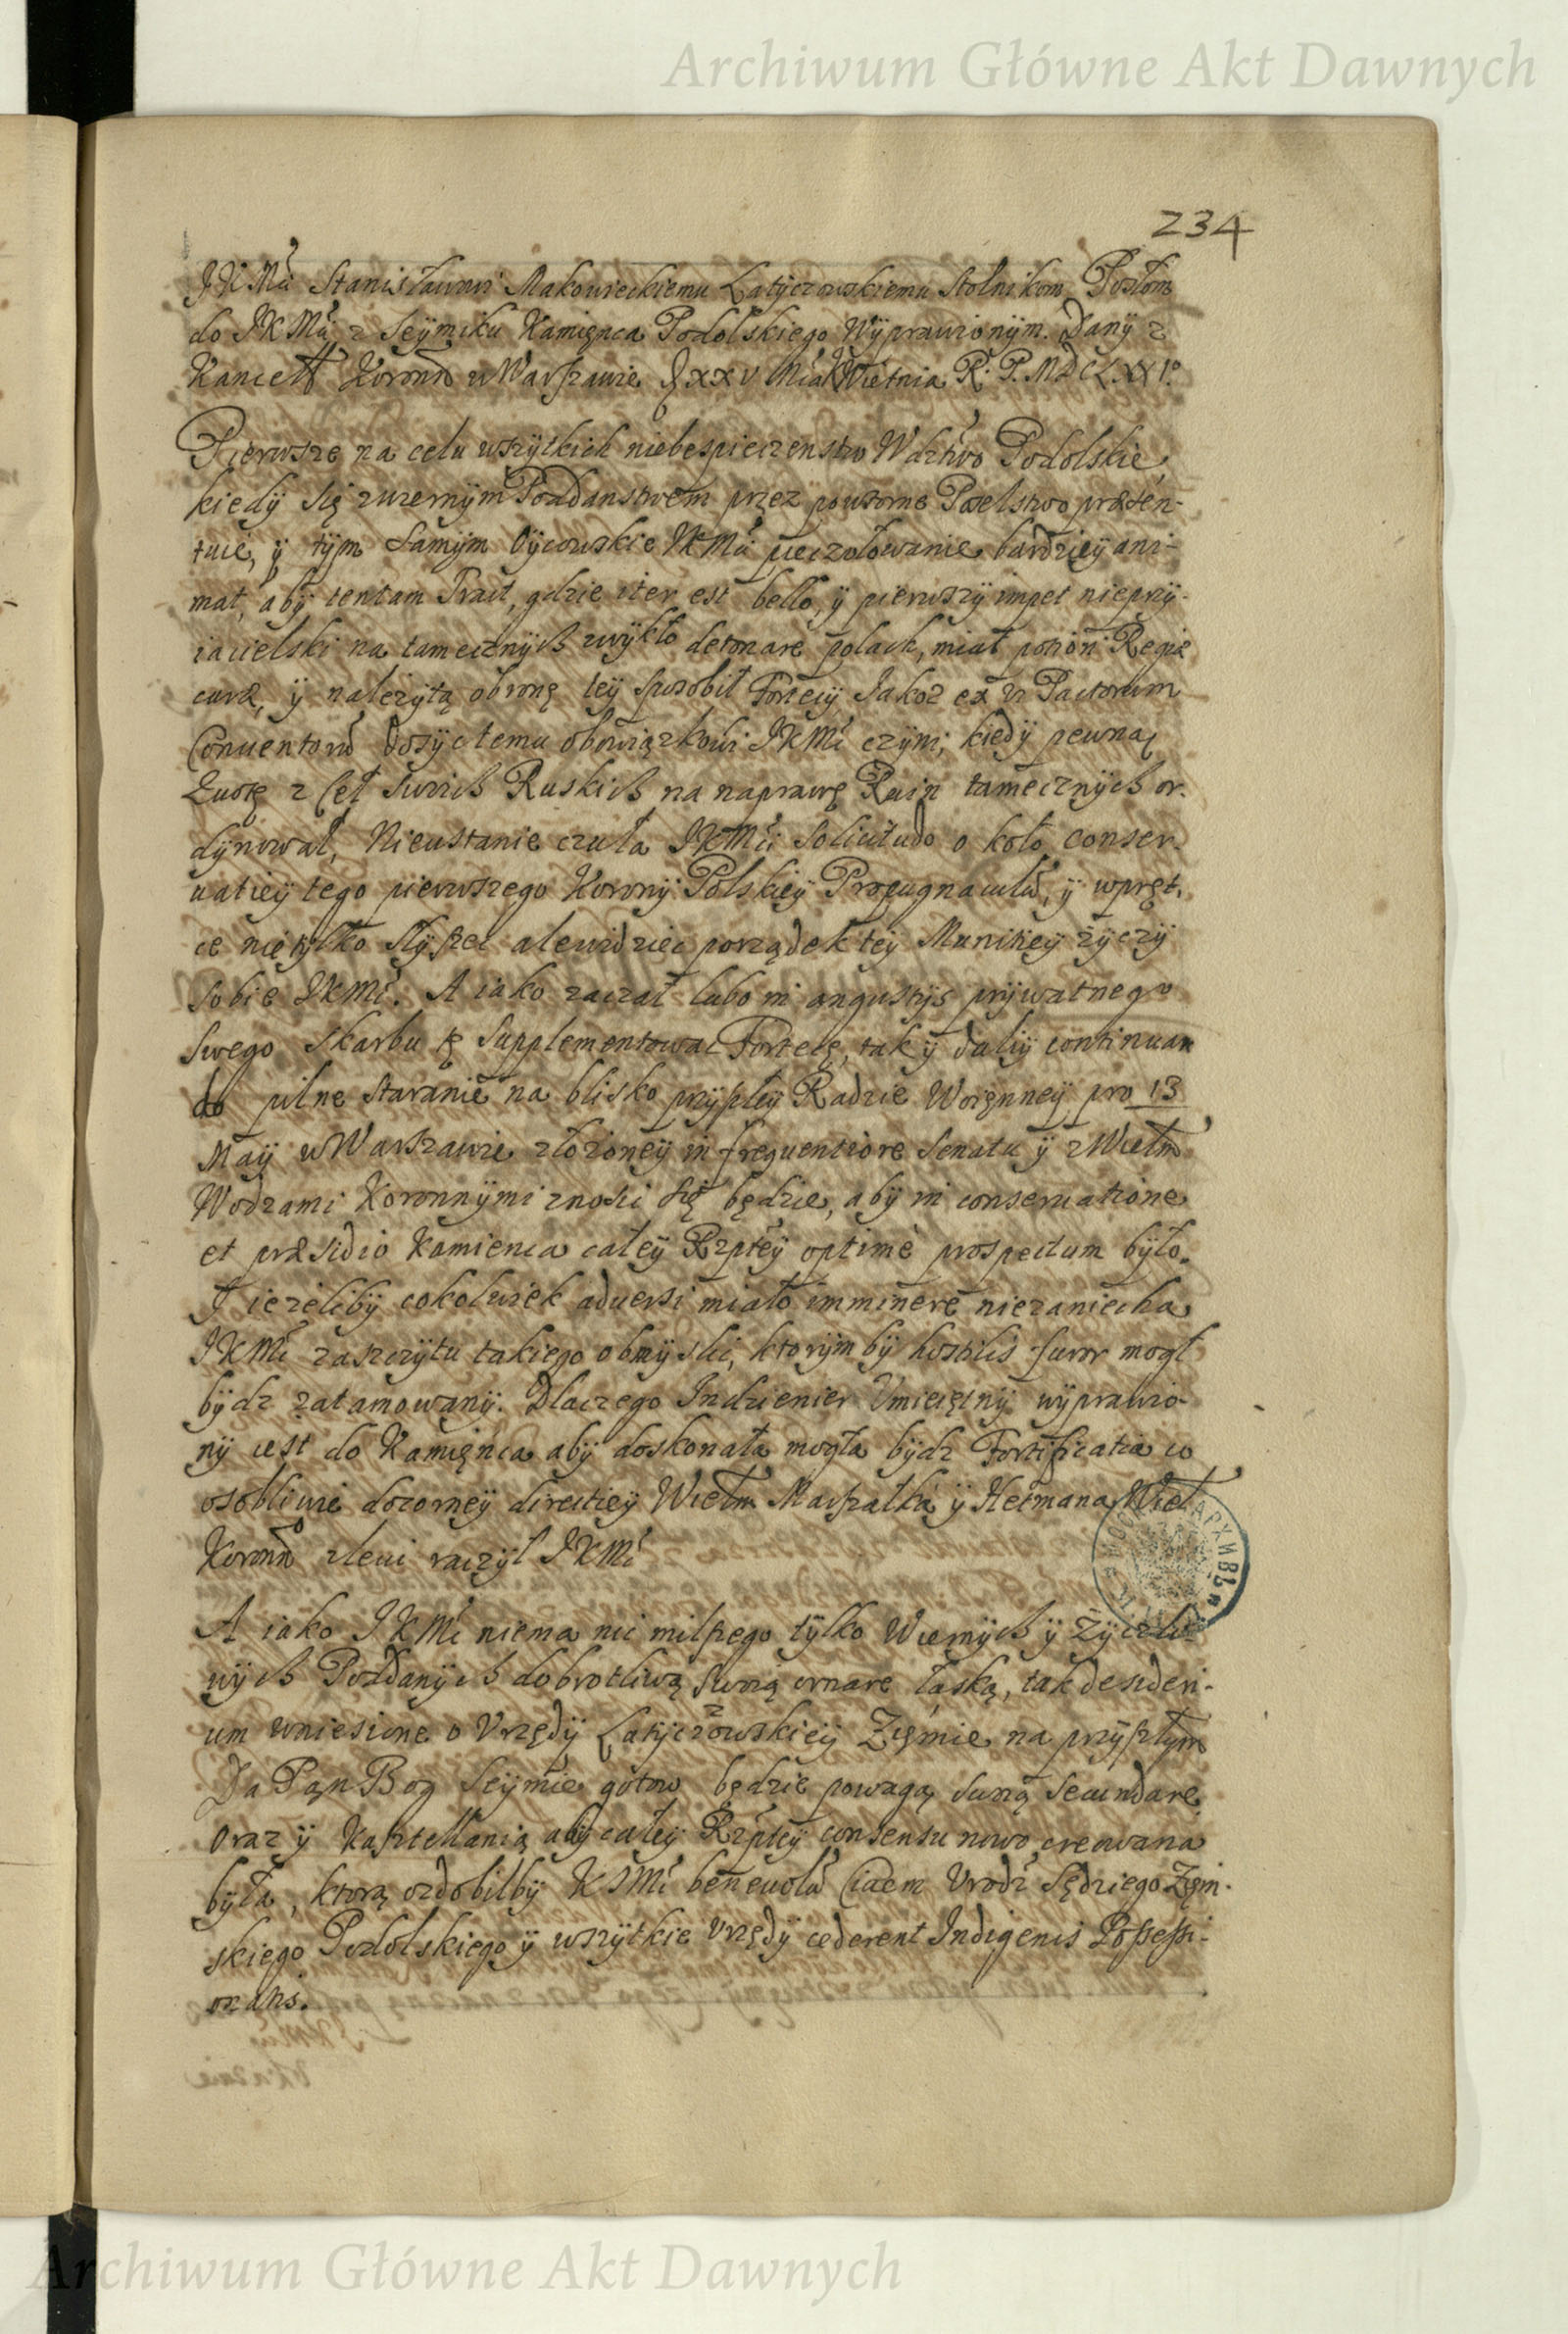 Archiwum Główne Akt Dawnych
234
JKMci Stanisławowi Makowieckiemu Latyczowskiemu Stolnikom Posłom
do JKMci z Seymiku Kamięnca Podolskiego Wyprawionym. Dany z
Kancell Koronn w Warszawie D XXV Mca Kwietnia R. P. MDCLXXI°
Pierwsze na celu wszytkich niebespieczenstw Wdztwo Podolskie,
kiedy się zwiernym Poddanstwem przez powtorne Poselstwo præsen-
tuie, y tym samym Oycowskie JKMci pieczołowanie bardziey ani-
mat, aby tentam Tract, gdzie iter est bello, y pierwszy impet niepry-
iacielski na tamecznych zwykło detonare polach, miał potiori Regiæ
curæ, y należytą obronę tey sposobił Fortecy, Jakoż ex vi Pactorum
Conventorū dosyc temu obowiązkowi JKMć czyni, kiedy pewną
Quotę z Ceł swoich Ruskich na naprawę Ruin tamecznych or-
dynował, Nieustanie czuła JKMci solicitudo o koło conser-
vatiey tego pierwszego Korony Polskiey Propugnaculū, y wpręt-
ce nietylko słyszec ale widziec porządek tey Munitiey życzy
sobie JKMć. A iako zaczął lubo in angustijs prywatnego
swego Skarbu tę supplementowac Fortecę, tak y daliy continuan
do pilne staranie na blisko przyszłey Radzie Woięnney pro 13
May w Warszawie złożoney in frequentiore Senatu y z Wielm
Wodzami Koronnymi znosic się będzie, aby in conservatione
et præsidio Kamienca całey Rzptey optimè prospectum było.
A ieżeliby cokolwiek adversi miało imminere niezaniecha
JKMć zaszczytu takiego obmyslic, ktorym by hostilis furor mogł
bydz zatamowany. Dlaczego Indzienier Umieiętny wyprawio-
ny iest do Kamięnca aby doskonała mogła bydz Fortificatia co
osobliwie dozorney directiey Wielm Marszałka y Hetmana Wiel
Koronn zleci raczył JKMć
A iako JKMć niema nic milszego tylko Wiernych y Życzli-
wych Poddanych dobrotliwą swoią ornare łaską, tak desideri-
um wniesione o Vrzędy Latyczowskiey Ziemie na przyszłym
Da Pan Bog Seymie gotow będzie powagą swoią secundare.
Oraz y Kasztellanią aby całey Rzptey consensu nowo creowana
była, ktorą ozdobiłby KJMć benevolū Ciaem Urodz Sędziego Zięm-
skiego Podolskiego y wszytkie Vrzędy cederent Indigenis Possessi-
onatis.
Archiwum Główne Akt Dawnych